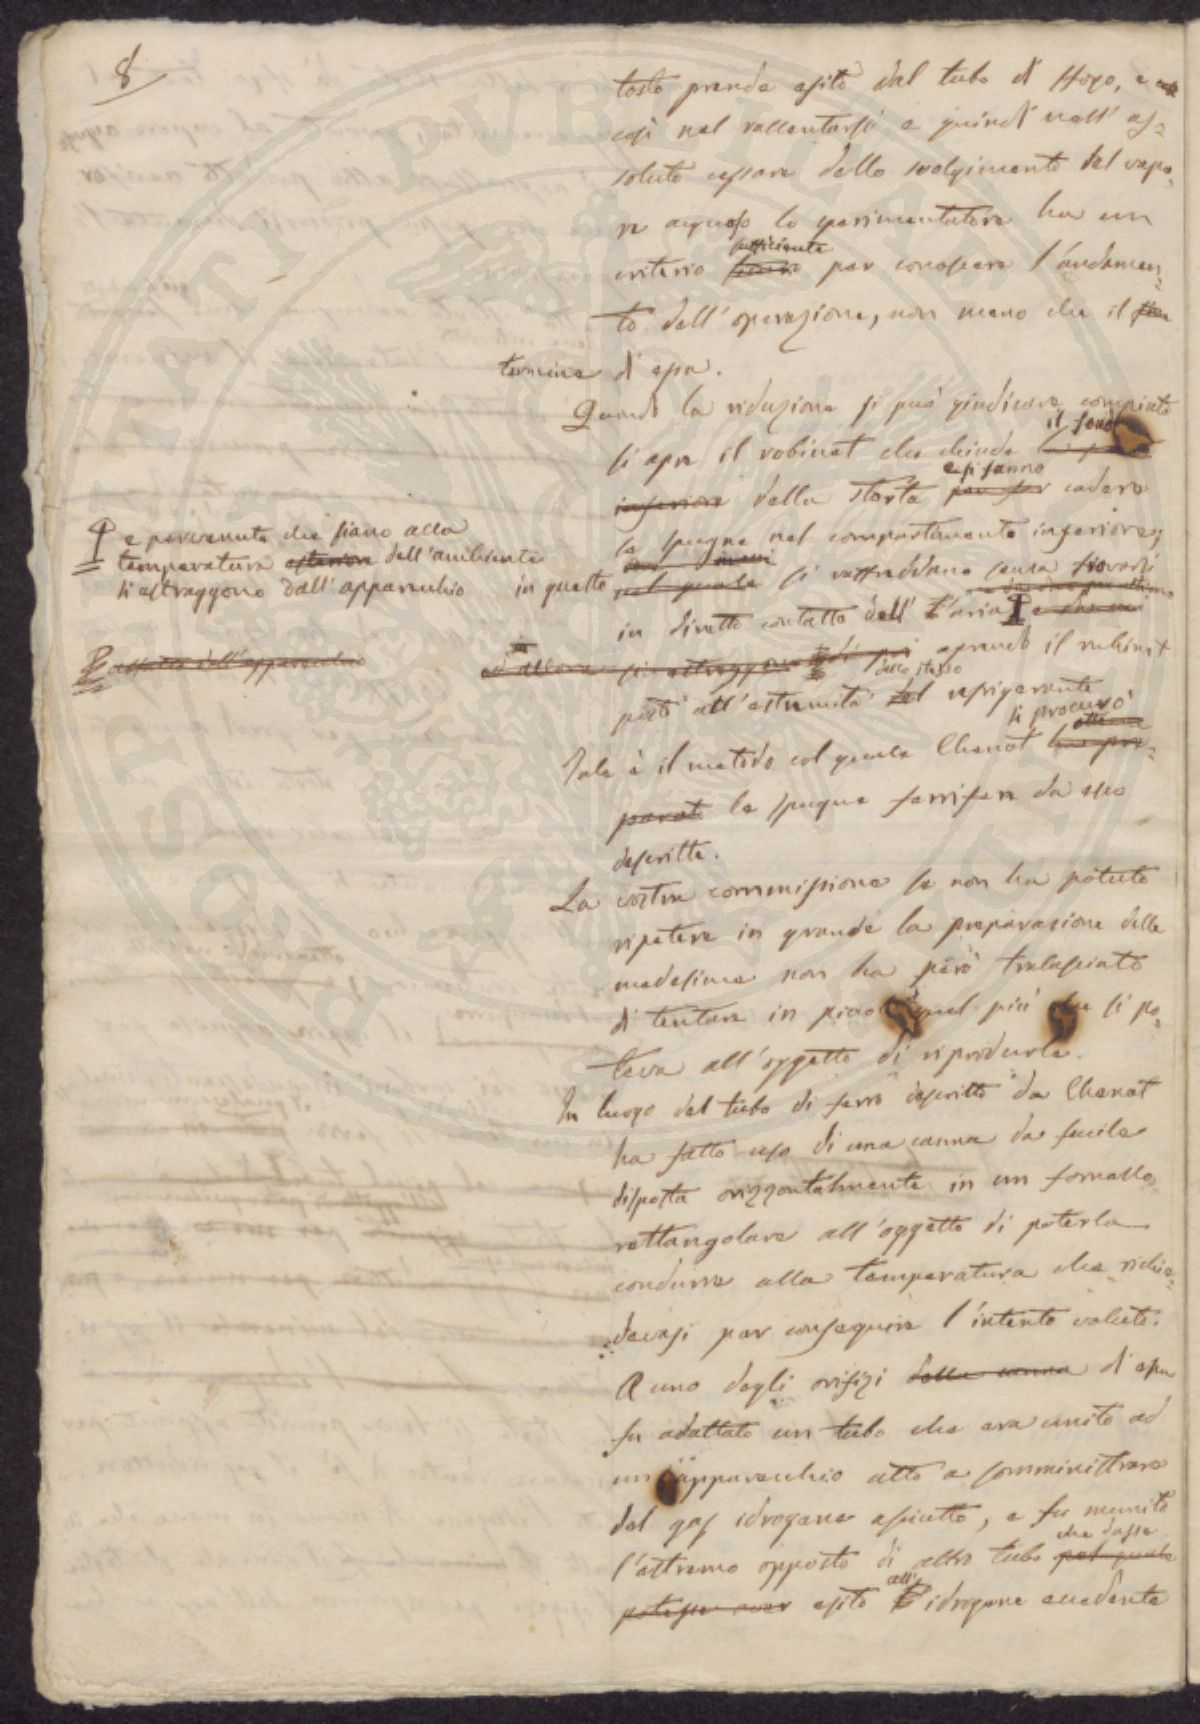 8
tosto prende esito dal tubo di sfogo, e
così nel rallentarsi e quindi nell' as=
soluto cessare dello svolgimento del vapo=
re acqueo lo sperimentatore ha un
sufficiente
criterio per conoscere l'andamen=
to dell'operazione, non meno che il
termine di essa.
Quando la riduzione si può giudicare compiuta
il fondo
si apre il robinet che chiude
e si fanno
inferiore della storta per far cadere
le spugne nel compartimento inferiore;
in questo nel quale si raffreddano senza trovarsi
in diretto contatto dell' aria
ed allora si estraggono aprendo il rubinet
dello stesso
posto all'estremità del refrigerante
si procurò
Tale è il metodo col quale Chenot ha pre=
parato le spugne ferrifere da esso
descritte.
La vostra commissione se non ha potuto
ripetere in grande la preparazione delle
medesime non ha però tralasciato
di tentare in piccolo quel più che si po=
teva all'oggetto di riprodurle.
In luogo del tubo di ferro descritto da Chenot
ha fatto uso di una canna da fucile
disposta orizzontalmente in un fornello
rettangolare all'oggetto di poterla
condurre alla temperatura che richie=
devasi per conseguire l'intento voluto.
A uno degli orifizi della canna di essa
fu adattato un tubo che era unito ad
un apparecchio atto a somministrare
del gas idrogene asciutto, e fu munito
che dasse
l'estremo opposto di altro tubo pel quale
all'
potesse aver esito idrogene eccedente
e pervenute che siano alla
temperatura esteriore dell'ambiente
si estraggono dall'apparecchio
affatto dall'apparecchio